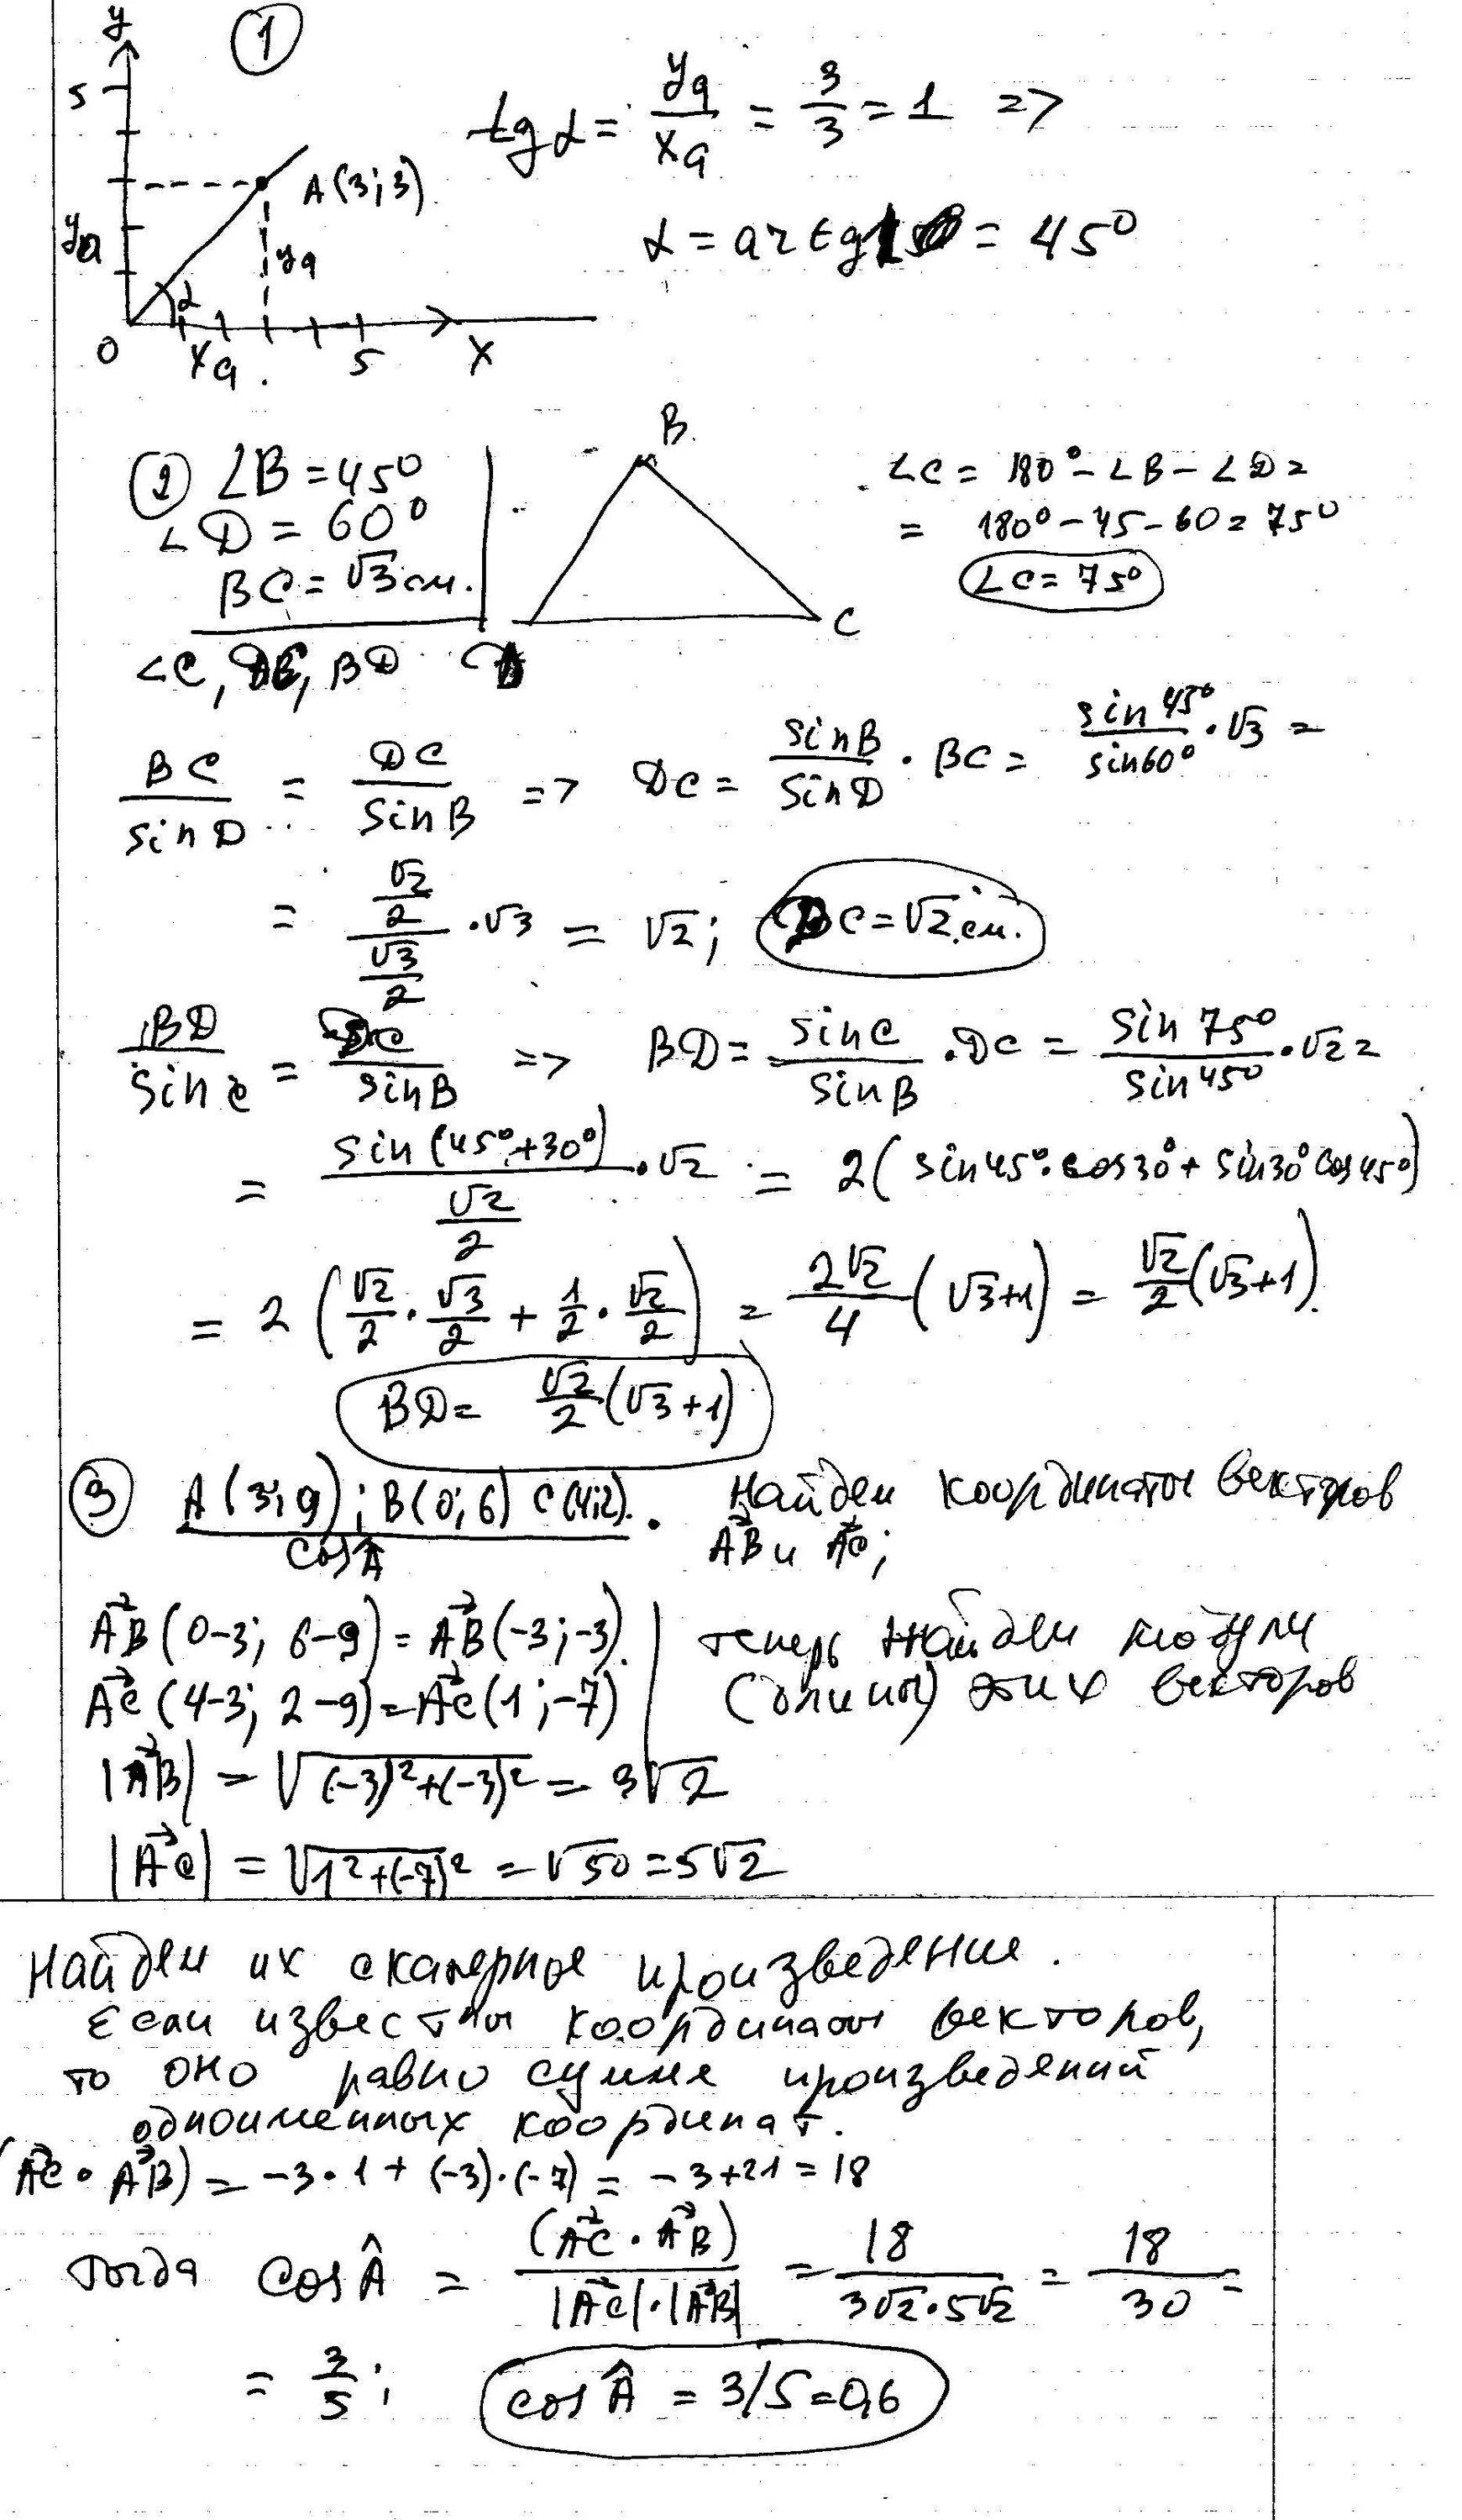 y
①
5
tg α = yₐ/xₐ = 3/3 = 1 =>
A(3;3)
yₐ
yₐ
α = arctg1 = 45°
α
0 xₐ 5 x
② ∠B = 45°
∠D = 60°
BC = √3 см.
∠C, DC, BD
B
D
C
∠C = 180° - ∠B - ∠D =
= 180° - 45 - 60 = 75°
∠C = 75°
BC/sin D = DC/sin B => DC = sin B/sin D · BC = sin 45°/sin 60° · √3 =
= (√2/2)/(√3/2) · √3 = √2; DC = √2 см.
BD/sin C = DC/sin B => BD = sin C/sin B · DC = sin 75°/sin 45° · √2 =
= sin(45°+30°)/(√2/2) · √2 = 2(sin45°·cos30° + sin30°cos45°)
= 2(√2/2 · √3/2 + 1/2 · √2/2) = 2√2/4 (√3+1) = √2/2 (√3+1).
BD = √2/2 (√3+1)
③ A(3;9); B(0;6) C(4;2).
cos Â
Найдем координаты векторов
AB⃗ и AC⃗;
AB⃗(0-3; 6-9) = AB⃗(-3;-3).
AC⃗(4-3; 2-9) = AC⃗(1;-7)
теперь найдем модули
(длины) этих векторов
|AB⃗| = √((-3)²+(-3)²) = 3√2
|AC⃗| = √(1²+(-7)²) = √50 = 5√2
Найдем их скалярное произведение.
Если известны координаты векторов,
то оно равно сумме произведений
одноименных координат.
(AC⃗ · AB⃗) = -3·1 + (-3)·(-7) = -3+21 = 18
тогда cos Â = (AC⃗ · AB⃗)/(|AC⃗|·|AB⃗|) = 18/(3√2·5√2) = 18/30 =
= 3/5; cos Â = 3/5 = 0,6